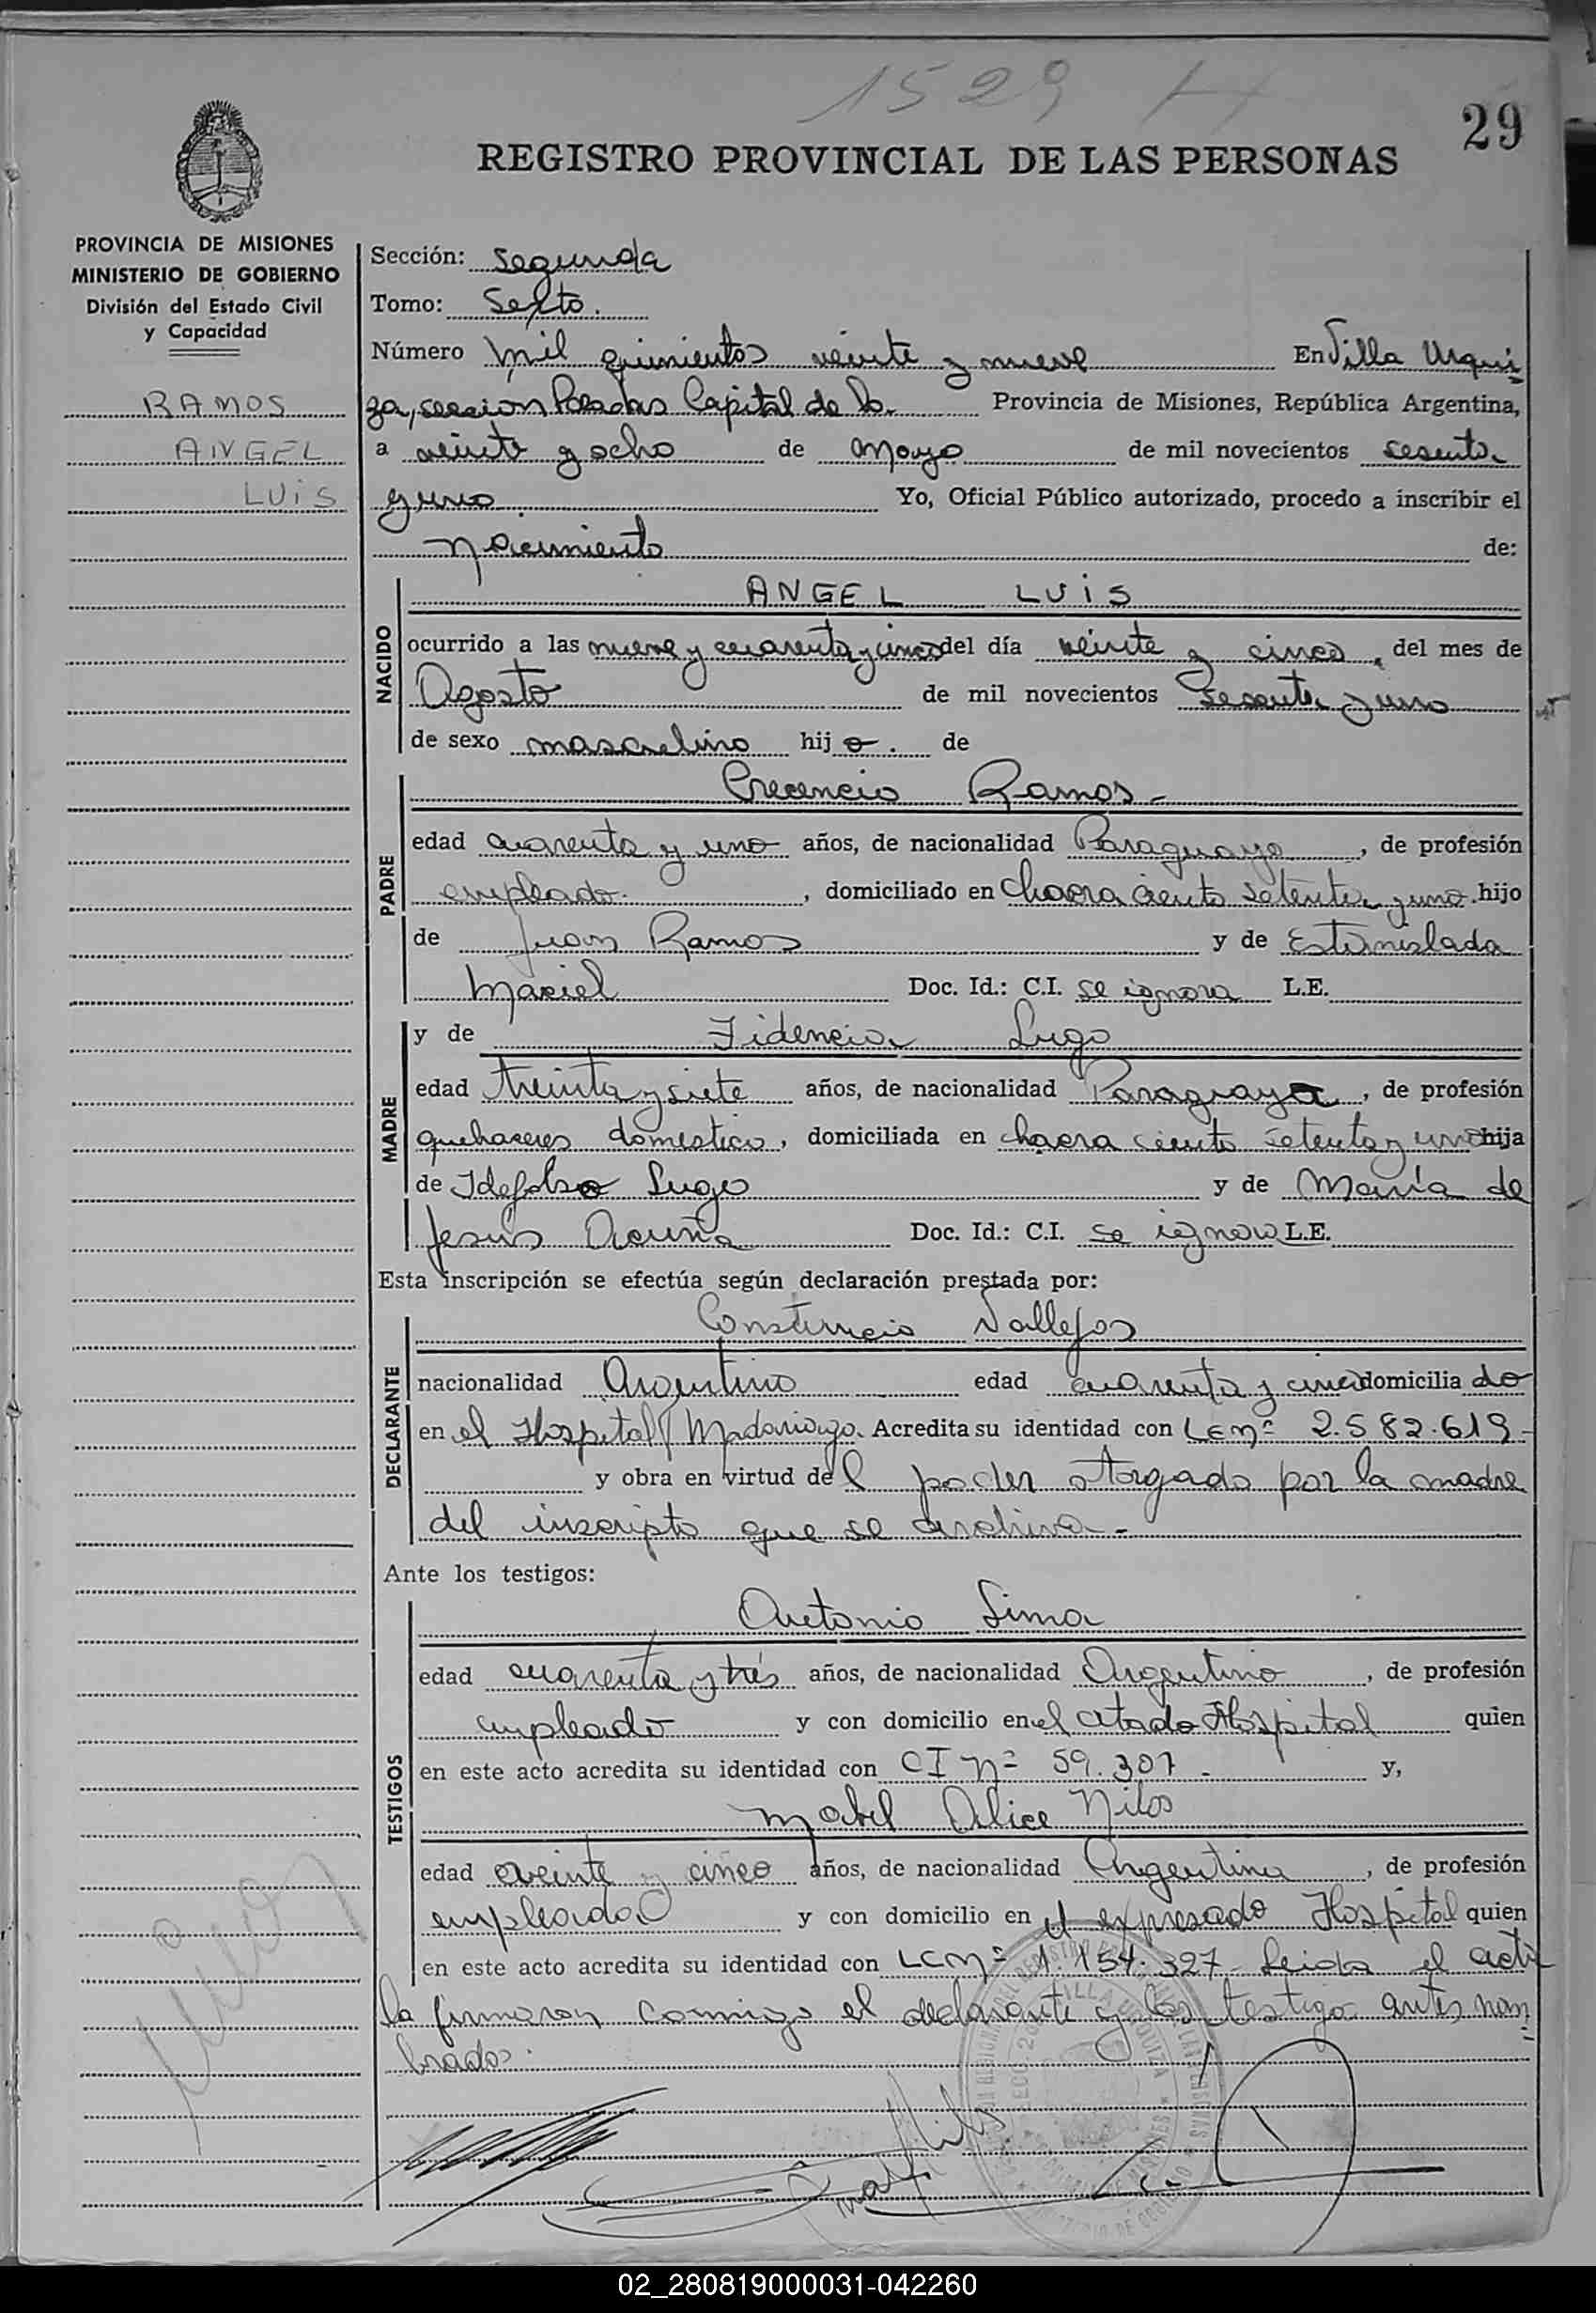 1529 H
29
REGISTRO PROVINCIAL DE LAS PERSONAS
PROVINCIA DE MISIONES
MINISTERIO DE GOBIERNO
División del Estado Civil
y Capacidad
RAMOS
ANGEL
LUiS
Sección: segunda
Tomo: Sexto.
Número mil quinientos veinte y nueve En Villa Urqui
za, seccion Posadas Capital de la Provincia de Misiones, República Argentina,
a veinte y ocho de Mayo de mil novecientos sesenta
y uno Yo, Oficial Público autorizado, procedo a inscribir el
Nacimiento de:
NACIDO
ANGEL LUiS
ocurrido a las nueve y cuarenta y cinco del día veinte y cinco, del mes de
Agosto de mil novecientos sesenta y uno
de sexo masculino hijo. de
PADRE
Crecencio Ramos-
edad cuarenta y uno años, de nacionalidad Paraguayo, de profesión
empleado., domiciliado en chacra ciento setenta y uno. hijo
de Juan Ramos y de Estanislada
Maciel Doc. Id.: C.I. se ignora L.E.
MADRE
y de Fidencia Lugo
edad treinta y siete años, de nacionalidad Paraguaya, de profesión
quehaceres domestico, domiciliada en chacra ciento setenta y uno hija
de Idefolso Lugo y de María de
Jesús Acuña Doc. Id.: C.I. se ignora L.E.
Esta inscripción se efectúa según declaración prestada por:
DECLARANTE
Constancio Vallejos
nacionalidad Argentino edad cuarenta y cinco domiciliado
en el Hospital Madariaga. Acredita su identidad con LEnº 2.582.619-
y obra en virtud del poder otorgado por la madre
del inscripto que se archiva-
Ante los testigos:
TESTIGOS
Antonio Lima
edad cuarenta y trés años, de nacionalidad Argentino, de profesión
empleado y con domicilio en el citado Hospital quien
en este acto acredita su identidad con CI nº 59.307- y,
Mabel Alice Nilos
edad veinte y cinco años, de nacionalidad Argentina, de profesión
empleada y con domicilio en el expresado Hospital quien
en este acto acredita su identidad con LCnº 1.154.327- Leida el acta
la firmaron conmigo el declarante y los testigo antes nom
brados.
VILLA URQUIZA
02_280819000031-042260